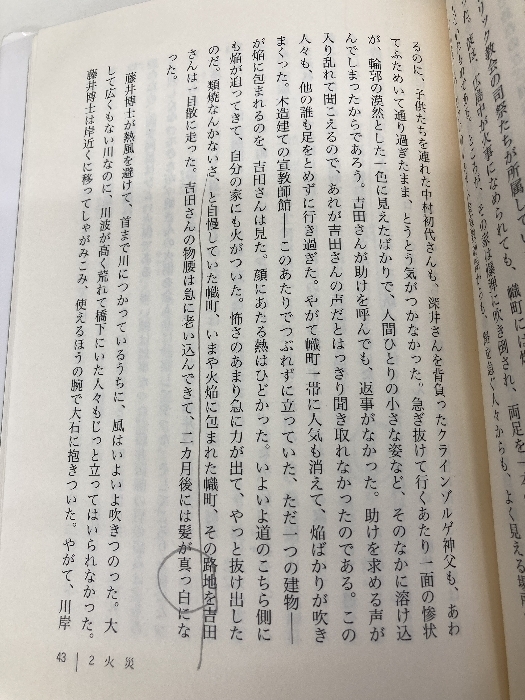 リック教会の司祭たちが所属し
るのに、子供たちを連れた中村初代さんも、深井さんを背負ったクラインゾルゲ神父も、あわ
てふためいて通り過ぎたまま、とうとう気がつかなかった。急ぎ抜けて行くあたり一面の惨状
が、輪郭の漠然とした一色に見えたばかりで、人間ひとりの小さな姿など、そのなかに溶け込
んでしまったからであろう。吉田さんが助けを呼んでも、返事がなかった。助けを求める声が
入り乱れて聞こえるので、あれが吉田さんの声だとはっきり聞き取れなかったのである。この
人々も、他の誰も足をとめずに行き過ぎた。やがて幟町一帯に人気も消えて、焔ばかりが吹き
まくった。木造建ての宣教師館——このあたりでつぶれずに立っていた、ただ一つの建物——
が焔に包まれるのを、吉田さんは見た。顔にあたる熱はひどかった。いよいよ道のこちら側に
も焔が迫ってきて、自分の家にも火がついた。怖さのあまり急に力が出て、やっと抜け出した
のだ。類焼なんかないさ、と自慢していた幟町、いまや火焔に包まれた幟町、その路地を吉田
さんは一目散に走った。吉田さんの物腰は急に老い込んできて、二カ月後には髪が真っ白にな
った。
藤井博士が熱風を避けて、首まで川につかっているうちに、風はいよいよ吹きつのった。大
して広くもない川なのに、川波が高く荒れて橋下にいた人々もじっと立ってはいられなかった。
藤井博士は岸近くに移ってしゃがみこみ、使えるほうの腕で大石に抱きついた。やがて、川岸
43 2 火災